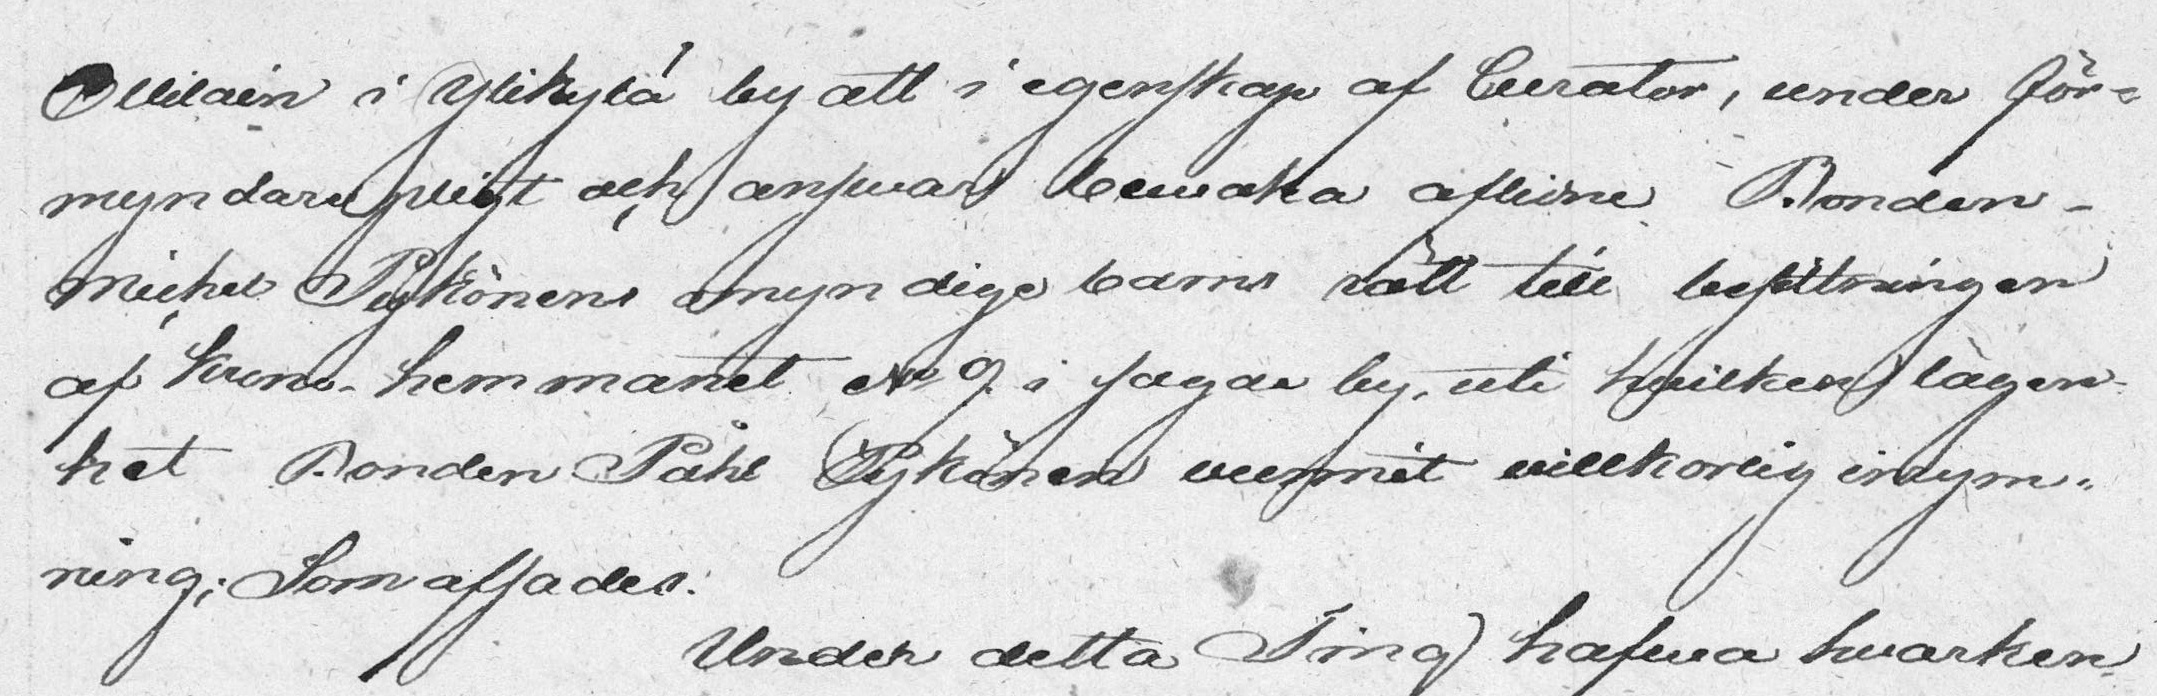 Ollilain i Ylikylä by att i egenskap af Curator, under för=
myndare pligt och answar bewaka aflidne Bonden
Michel Pykönens omyndige barns rätt till besittningen
af krono-hemmanet No 9 i sagda by, uti hvilken lägen-
het Bonden Påhl Pykönen vunnit villkorlig inrym-
ning; Som afsades.
Under detta Ting hafwa hwarken